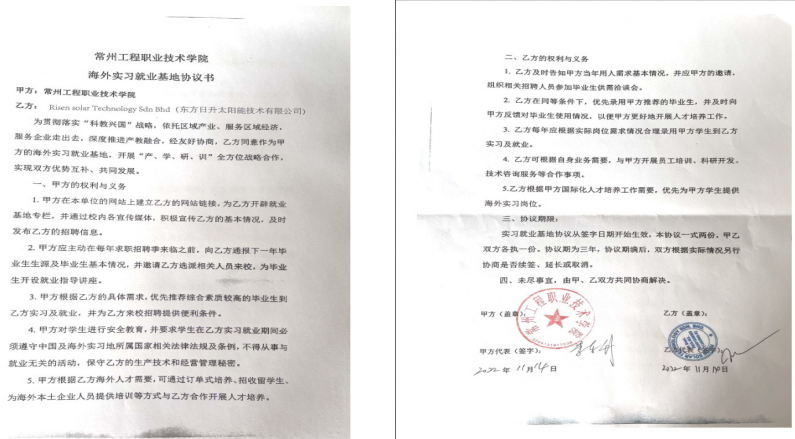 常州工程职业技术学院
海外实习就业基地协议书
甲方：常州工程职业技术学院
乙方： Risen solar Technology Sdn Bhd（东方日升太阳能技术有限公司）
为贯彻落实“科教兴国”战略，依托区域产业、服务区域经济，
服务企业走出去，深度推进产教融合，经友好协商，乙方同意作为甲
方的海外实习就业基地，开展“产、学、研、训”全方位战略合作，
实现双方优势互补、共同发展。
一、甲方的权利与义务
1. 甲方在本单位的网站上建立乙方的网站链接，为乙方开辟就业
基地专栏，并通过校内各宣传媒体，积极宣传乙方的基本情况，及时
发布乙方的招聘信息。
2. 甲方应主动在每年求职招聘季来临之前，向乙方通报下一年毕
业生生源及毕业生基本情况，并邀请乙方选派相关人员来校，为毕业
生开设就业指导讲座。
3. 甲方根据乙方的具体需求，优先推荐综合素质较高的毕业生到
乙方实习及就业，并为乙方来校招聘提供便利条件。
4. 甲方对学生进行安全教育，并要求学生在乙方实习就业期间必
须遵守中国及海外实习地所属国家相关法律法规及条例，不得从事与
就业无关的活动，保守乙方的生产技术和经营管理秘密。
5. 甲方根据乙方海外人才需要，可通过订单式培养、招收留学生、
为海外本土企业人员提供培训等方式与乙方合作开展人才培养。
二、乙方的权利与义务
1. 乙方及时告知甲方当年用人需求基本情况，并应甲方的邀请，
组织相关招聘人员参加毕业生供需洽谈会。
2. 乙方在同等条件下，优先录用甲方推荐的毕业生，并及时向
甲方反馈对毕业生使用情况，以便甲方更好地开展人才培养工作。
3. 乙方每年应根据实际岗位需求情况合理录用甲方学生到乙方
实习及就业。
4. 乙方可根据自身业务需要，与甲方开展员工培训、科研开发、
技术咨询服务等合作事项。
5.乙方根据甲方国际化人才培养工作需要，优先为甲方学生提供
海外实习岗位。
三、协议期限：
实习就业基地协议从签字日期开始生效，本协议一式两份，甲乙
双方各执一份。协议期为三年，协议期满后，双方根据实际情况另行
协商是否续签、延长或取消。
四、未尽事宜，由甲、乙双方共同协商解决。
甲方（盖章）： 乙方（盖章）：
常州工程职业技术学院
甲方代表（签字）： 乙方代表（签字）：
2022 年 11 月 14 日 2022 年 11 月 10 日